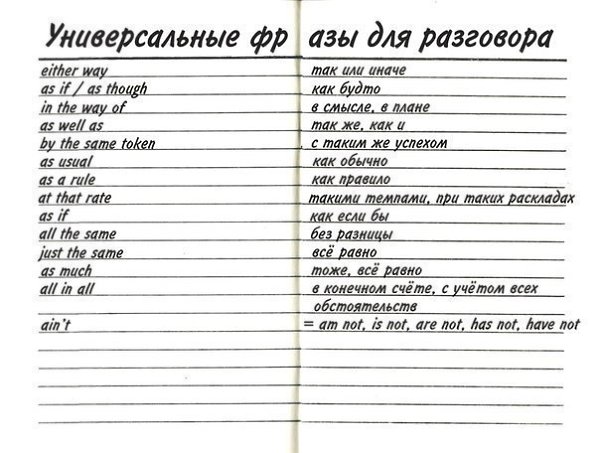 Универсальные фразы для разговора
either way так или иначе
as if / as though как будто
in the way of в смысле, в плане
as well as так же, как и
by the same token с таким же успехом
as usual как обычно
as a rule как правило
at that rate такими темпами, при таких раскладах
as if как если бы
all the same без разницы
just the same всё равно
as much тоже, всё равно
all in all в конечном счёте, с учётом всех
обстоятельств
ain't = am not, is not, are not, has not, have not